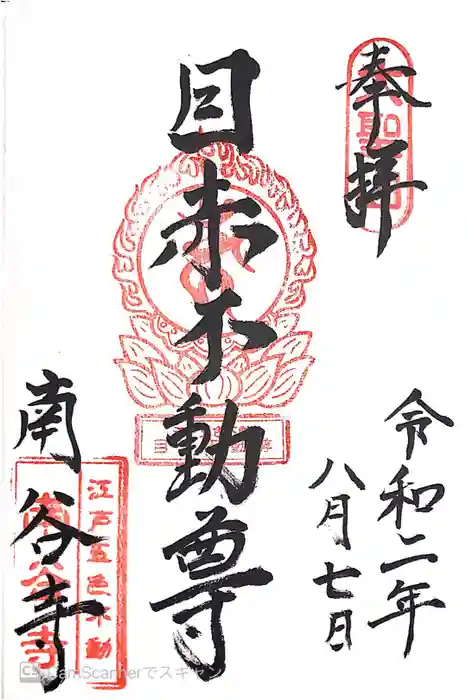 奉拝
令和二年
八月七日
目赤不動尊
江戸五色不動
南谷寺
CS CamScannerでスキャン